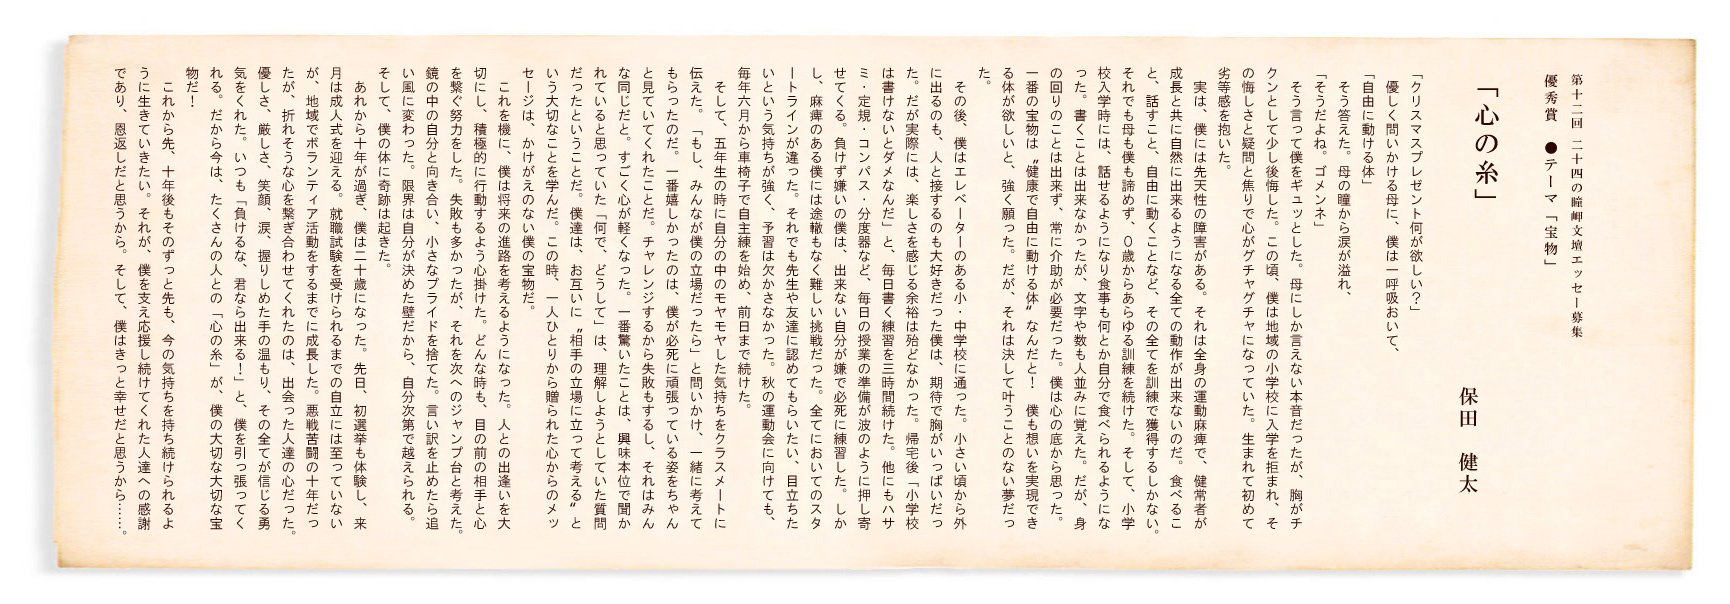 第十二回 二十四の瞳岬文壇エッセー募集
優秀賞 ●テーマ「宝物」
「心の糸」
保田 健太
「クリスマスプレゼント何が欲しい？」
優しく問いかける母に、僕は一呼吸おいて、
「自由に動ける体」
そう答えた。母の瞳から涙が溢れ、
「そうだよね。ゴメンネ」
そう言って僕をギュッとした。母にしか言えない本音だったが、胸がチ
クンとして少し後悔した。この頃、僕は地域の小学校に入学を拒まれ、そ
の悔しさと疑問と焦りで心がグチャグチャになっていた。生まれて初めて
劣等感を抱いた。
実は、僕には先天性の障害がある。それは全身の運動麻痺で、健常者が
成長と共に自然に出来るようになる全ての動作が出来ないのだ。食べるこ
と、話すこと、自由に動くことなど、その全てを訓練で獲得するしかない。
それでも母も僕も諦めず、０歳からあらゆる訓練を続けた。そして、小学
校入学時には、話せるようになり食事も何とか自分で食べられるようにな
った。書くことは出来なかったが、文字や数も人並みに覚えた。だが、身
の回りのことは出来ず、常に介助が必要だった。僕は心の底から思った。
一番の宝物は〝健康で自由に動ける体〟なんだと！　僕も想いを実現でき
る体が欲しいと、強く願った。だが、それは決して叶うことのない夢だっ
た。
その後、僕はエレベーターのある小・中学校に通った。小さい頃から外
に出るのも、人と接するのも大好きだった僕は、期待で胸がいっぱいだっ
た。だが実際には、楽しさを感じる余裕は殆どなかった。帰宅後「小学校
は書けないとダメなんだ」と、毎日書く練習を三時間続けた。他にもハサ
ミ・定規・コンパス・分度器など、毎日の授業の準備が波のように押し寄
せてくる。負けず嫌いの僕は、出来ない自分が嫌で必死に練習した。しか
し、麻痺のある僕には途轍もなく難しい挑戦だった。全てにおいてのスタ
ートラインが違った。それでも先生や友達に認めてもらいたい、目立ちた
いという気持ちが強く、予習は欠かさなかった。秋の運動会に向けても、
毎年六月から車椅子で自主練を始め、前日まで続けた。
そして、五年生の時に自分の中のモヤモヤした気持ちをクラスメートに
伝えた。「もし、みんなが僕の立場だったら」と問いかけ、一緒に考えて
もらったのだ。一番嬉しかったのは、僕が必死に頑張っている姿をちゃん
と見ていてくれたことだ。チャレンジするから失敗もするし、それはみん
な同じだと。すごく心が軽くなった。一番驚いたことは、興味本位で聞か
れていると思っていた「何で、どうして」は、理解しようとしていた質問
だったということだ。僕達は、お互いに〝相手の立場に立って考える〟と
いう大切なことを学んだ。この時、一人ひとりから贈られた心からのメッ
セージは、かけがえのない僕の宝物だ。
これを機に、僕は将来の進路を考えるようになった。人との出逢いを大
切にし、積極的に行動するよう心掛けた。どんな時も、目の前の相手と心
を繋ぐ努力をした。失敗も多かったが、それを次へのジャンプ台と考えた。
鏡の中の自分と向き合い、小さなプライドを捨てた。言い訳を止めたら追
い風に変わった。限界は自分が決めた壁だから、自分次第で越えられる。
そして、僕の体に奇跡は起きた。
あれから十年が過ぎ、僕は二十歳になった。先日、初選挙も体験し、来
月は成人式を迎える。就職試験を受けられるまでの自立には至っていない
が、地域でボランティア活動をするまでに成長した。悪戦苦闘の十年だっ
たが、折れそうな心を繋ぎ合わせてくれたのは、出会った人達の心だった。
優しさ、厳しさ、笑顔、涙、握りしめた手の温もり、その全てが信じる勇
気をくれた。いつも「負けるな、君なら出来る！」と、僕を引っ張ってく
れる。だから今は、たくさんの人との「心の糸」が、僕の大切な大切な宝
物だ！
これから先、十年後もそのずっと先も、今の気持ちを持ち続けられるよ
うに生きていきたい。それが、僕を支え応援し続けてくれた人達への感謝
であり、恩返しだと思うから。そして、僕はきっと幸せだと思うから……。